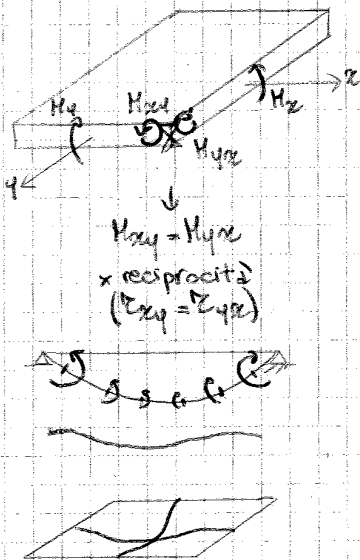 x
My Mxy Mx
Myx
y
Mxy = Myx
x reciprocità
(τxy = τyx)